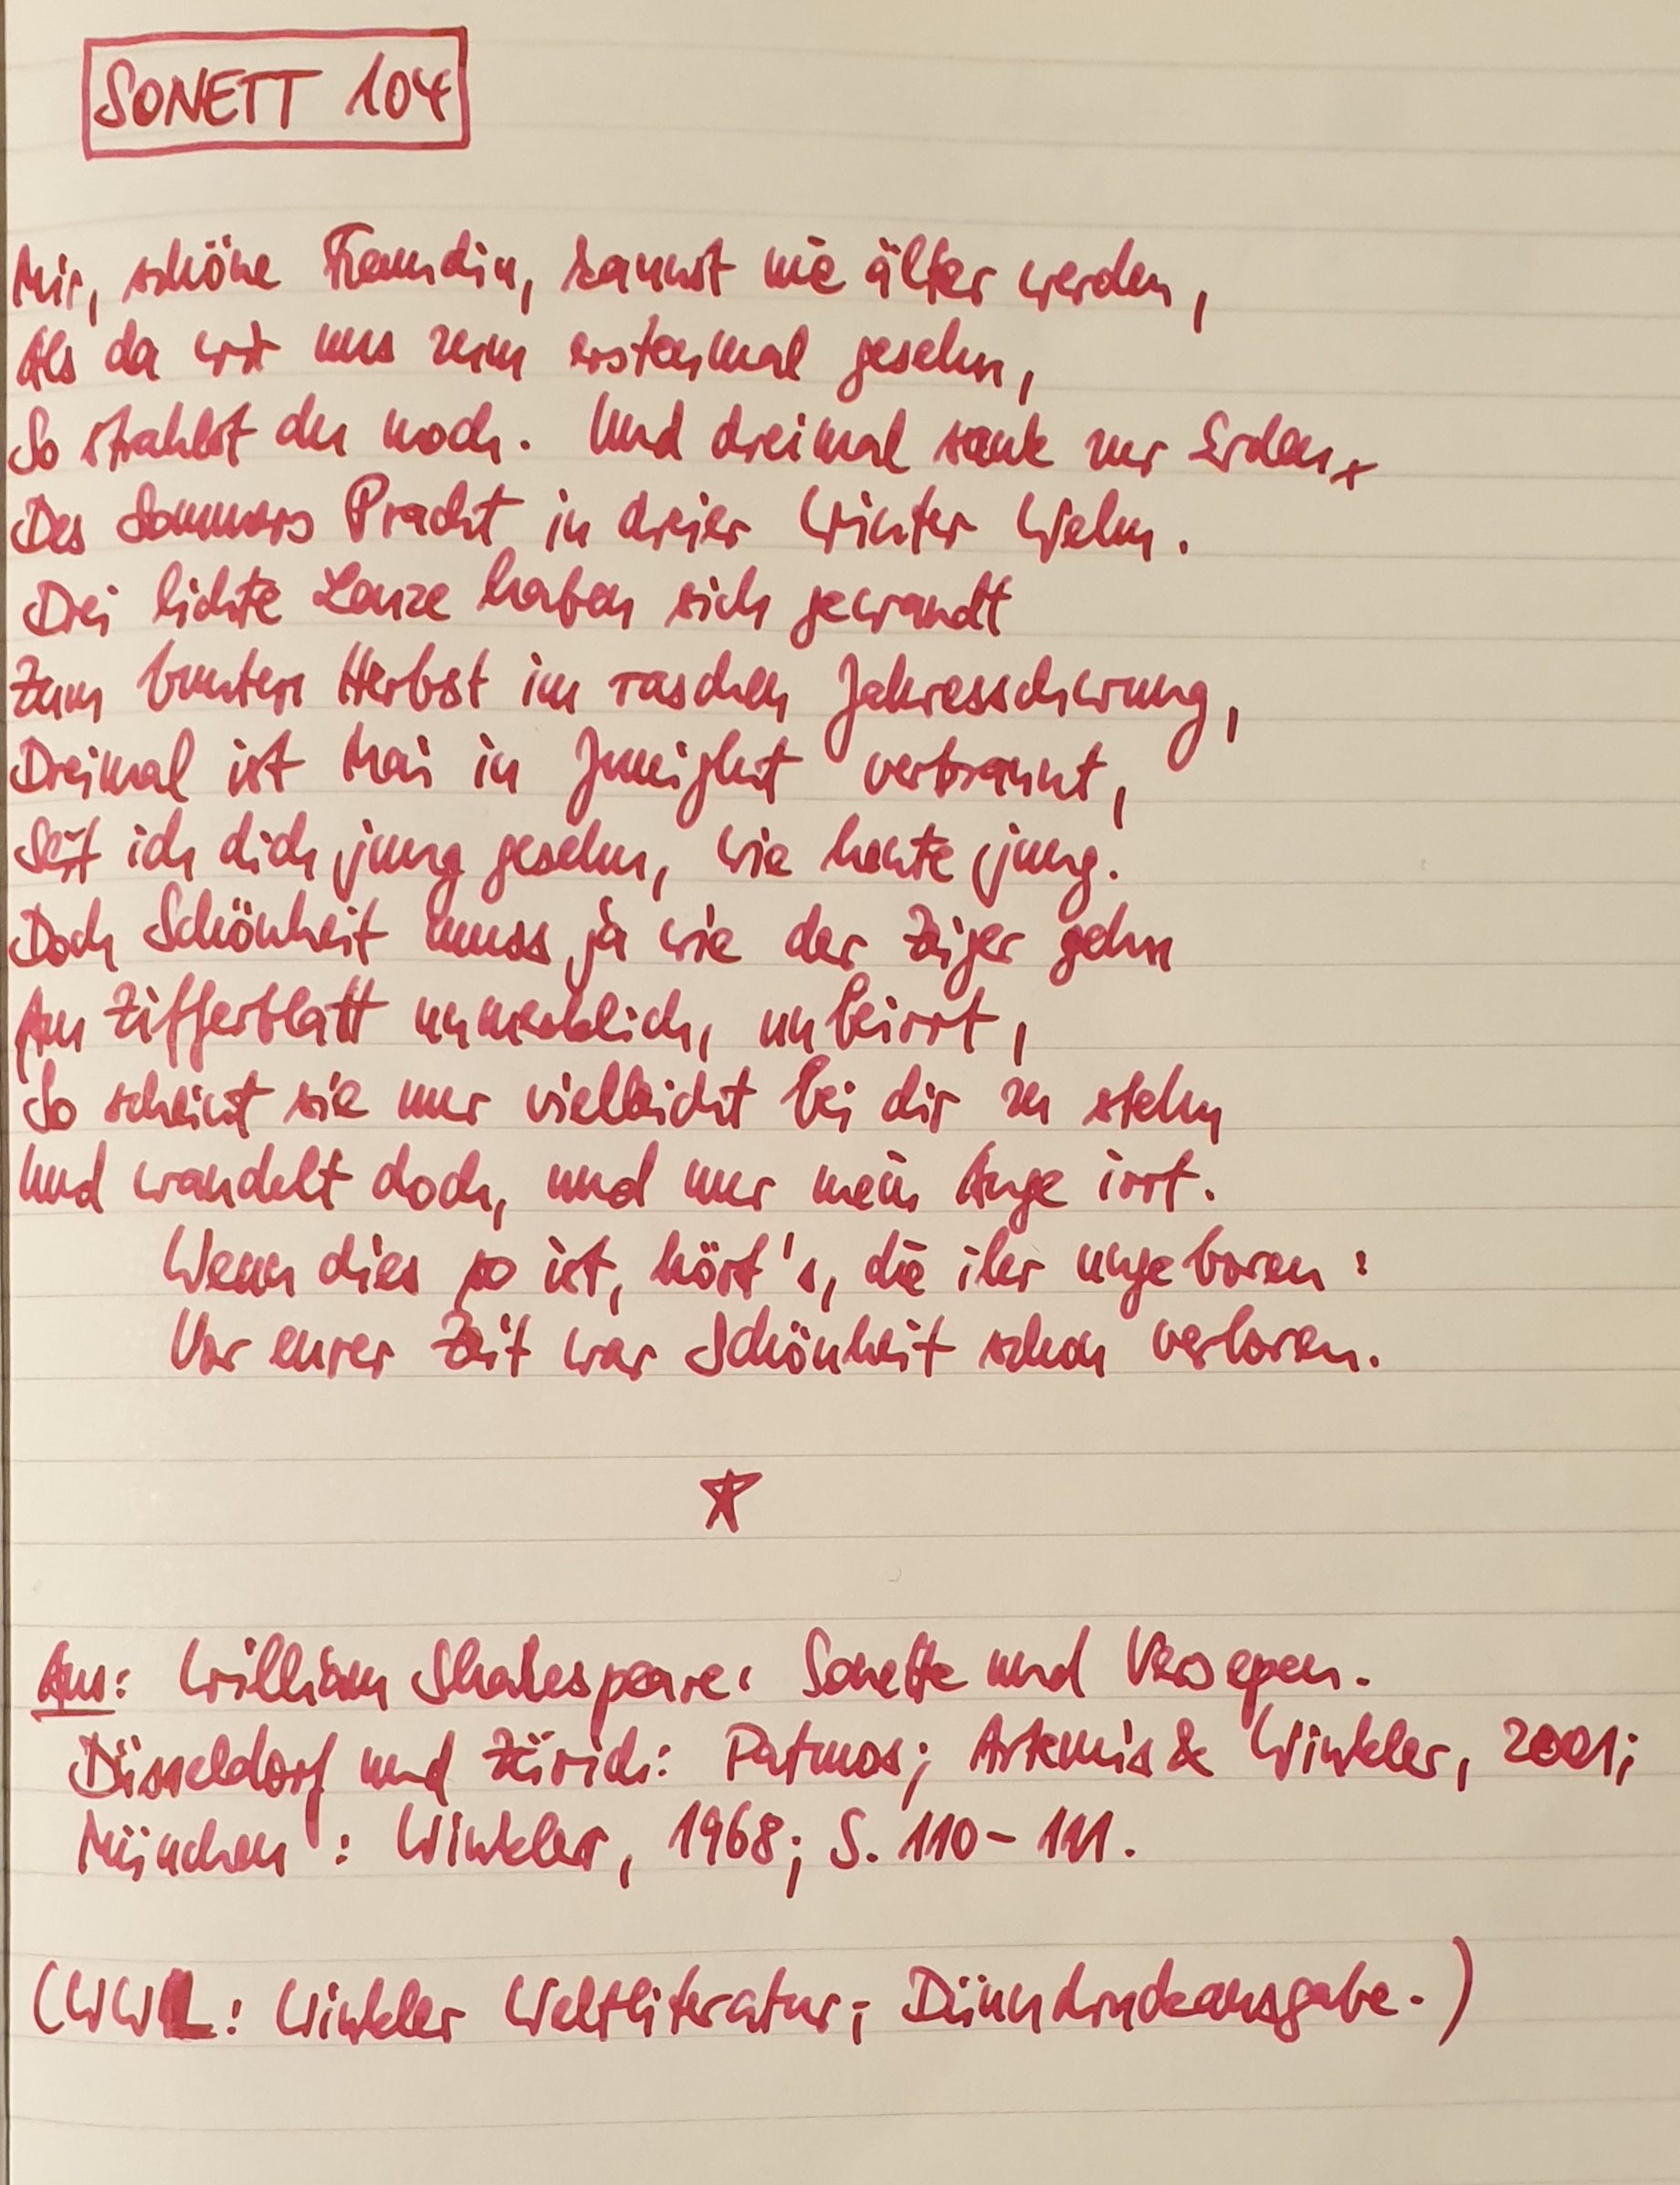 SONETT 104
Mir, schöne Freundin, kannst nie älter werden,
Als da wir uns zum erstenmal gesehn,
So strahlst du noch. Und dreimal sank zur Erden
Des Sommers Pracht in dreier Winter Wehn.
Drei lichte Lenze haben sich gewandt
Zum bunten Herbst im raschen Jahresschwung,
Dreimal ist Mai in Juniglut verbrannt,
Seit ich dich jung gesehn, wie heute jung.
Doch Schönheit muss ja wie der Zeiger gehn
Am Zifferblatt unmerklich, unbeirrt,
So scheint sie nur vielleicht bei dir zu stehn
Und wandelt doch, und nur mein Auge irrt.
Wenn dies so ist, hört's, die ihr ungeboren:
Vor eurer Zeit war Schönheit schon verloren.
Aus: William Shakespeare: Sonette und Versepen.
Düsseldorf und Zürich: Patmos; Artemis & Winkler, 2001;
München: Winkler, 1968; S. 110-111.
(WWL: Winkler Weltliteratur; Dünndruckausgabe.)